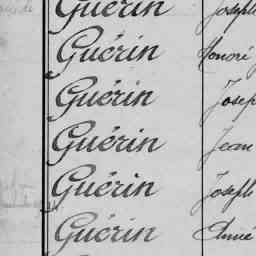 Guérin Joseph
Guérin Honoré
Guérin Joseph
Guérin Jean
Guérin Joseph
Guérin Aimé